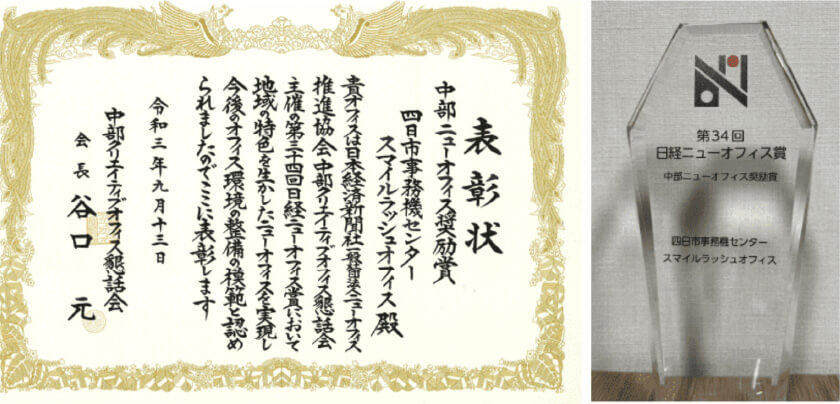 表彰状
中部ニューオフィス奨励賞
四日市事務機センター
スマイルラッシュオフィス 殿
貴オフィスは日本経済新聞社一般社団法人ニューオフィス
推進協会中部クリエイティブオフィス懇話会
主催の第三十四回日経ニューオフィス賞において
地域の特色を生かしたニューオフィスを実現し
今後のオフィス環境の整備の模範と認め
られましたのでここに表彰します
令和三年九月十三日
中部クリエイティブオフィス懇話会
会長 谷口 元
第34回
日経ニューオフィス賞
中部ニューオフィス奨励賞
四日市事務機センター
スマイルラッシュオフィス